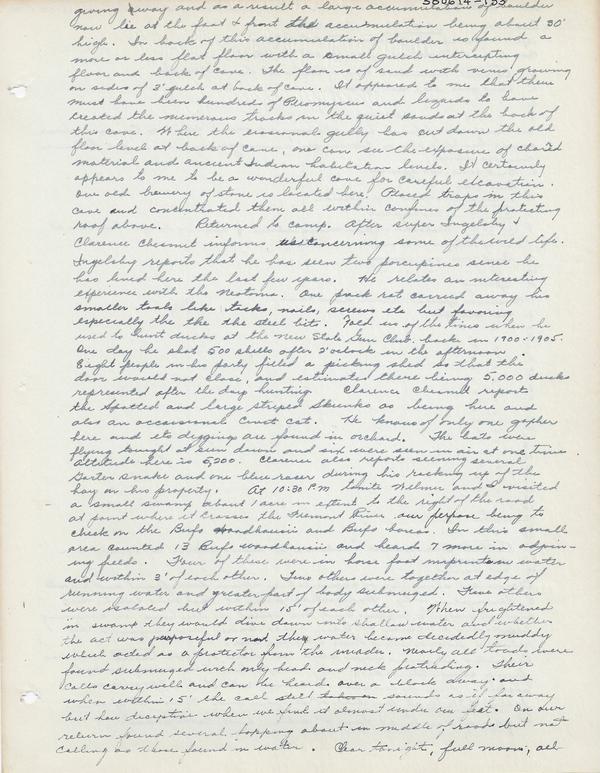 S80614-133
giving away and as a result a large accumulation of boulder
now lie at the foot & front the accumulation being about 30'
high. In back of this accumulation of boulder is found a
more or less flat floor with a small gulch intercepting
floor and back of cave. The floor is of sand with growing
on sides of 2' gulch at back of cave. It appeared to me that there
must have been hundreds of Peromyscus and lizards to have
created the numerous tracks in the quiet sands at the back of
this cave. Where the erosional gully has cut down the old
floor level at back of cave, one can see the exposure of charred
material and ancient Indian habitation levels. It certainly
appears to me to be a wonderful cave for careful excavation.
One old of stone is located here. Placed traps in this
cave and concentrated them all within confines of the protecting
roof above. Returned to camp. After super Ingelsby &
Clarence Chesnut informs us concerning some of the wild life.
Ingelsby reports that he has seen two porcupines since he
has lived here the last few years. He relates an interesting
experience with the Neotoma. One pack rat carried away his
smaller tools like tacks, nails, screws etc but favoring
especially the the the steel bits. Told us of the times when he
used to hunt ducks at the New State Gun Club back in 1900-1905.
One day he shot 500 shells after 2 o'clock in the afternoon.
Eight people in his party filled a picking shed so that the
door would not close, and estimates there being 5,000 ducks
represented after the day hunting. Clarence Chesnut report
the Spotted and large striped Skunks as being here and
also an occassional Civet cat. He knows of only one gopher
here and its diggings are found in orchard. The bats were
flying tonight at sun down and six were seen in air at one time.
Altitude here is 5,200. Clarence also reports seeing several
Garter snake and one blue racer during his raking up of the
hay on his property. At 10:30 P.M tonite Wilmer and I visited
a small swamp about 1 acre in extent to the right of the road
at point where it crosses the Fremont River our purpose being to
check on the Bufo woodhousii and Bufo boreas. In this small
area counted 13 Bufo woodhousii and heard 7 more in adjoin-
ing fields. Four of these were in horse foot imprints in water
and within 3' of each other. Two others were together at edge of
running water and greater part of body submerged. Two others
were isolated but within 15' of each other. When frightened
in swamp they would dive down into shallow water and whether
the act was purposeful or not they water became decidedly muddy
which acted as a protector from the invader. Nearly all toads were
found submerged with only head and neck protruding. Their
calls carry well and can be heard over a block away and
when within 15' the call still sounds as if far away
but how deceptive when we find it almost under our feet. On our
return found several hopping about in middle of roads but not
calling as those found in water. Clear tonight, full moon, all